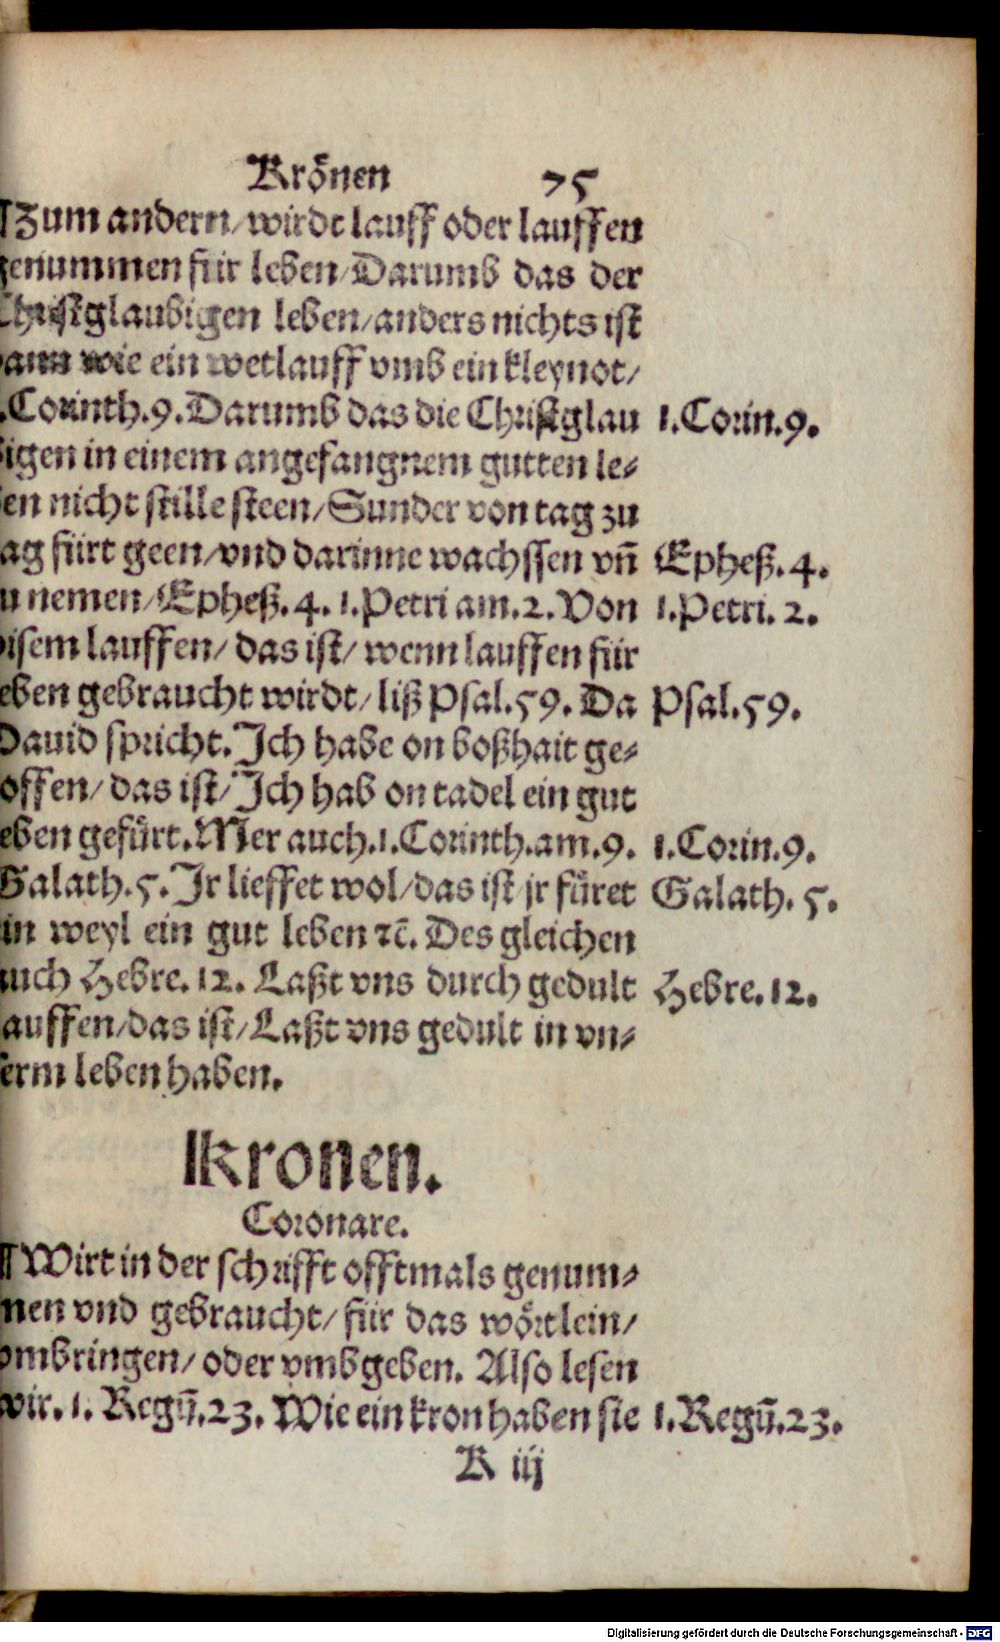 Krönen 75
¶Zum andern/wirdt lauff oder lauffen
genummen für leben/Darumb das der
Christglaubigen leben/anders nichts ist
dann wie ein wetlauff vmb ein kleynot/
1.Corinth.9.Darumb das die Christglau 1.Corin.9.
bigen in einem angefangnem gutten le⸗
ben nicht stille steen/Sunder von tag zu
tag fürt geen/vnd darinne wachssen vñ Epheß.4.
zu nemen/Epheß.4. 1.Petri am.2.Von 1.Petri.2.
disem lauffen/das ist/wenn lauffen für
leben gebraucht wirdt/liß Psal.59.Da Psal.59.
Dauid spricht.Ich habe on boßhait ge⸗
loffen/das ist/Ich hab on tadel ein gut
leben gefürt.Mer auch.1.Corinth.am.9. 1.Corin.9.
Galath.5.Ir lieffet wol/das ist jr füret Galath.5.
ein weyl ein gut leben ⁊c̄. Des gleichen
auch Hebre.12. Laßt vns durch gedult Hebre.12.
lauffen/das ist/Laßt vns gedult in vn⸗
serm leben haben.
Kronen.
Coronare.
¶Wirt in der schrifft offtmals genum⸗
men vnd gebraucht/für das wörtlein/
vmbringen/oder vmbgeben. Also lesen
wir.1.Regū.23. Wie ein kron haben sie 1.Regū.23.
K iij
Digitalisierung gefördert durch die Deutsche Forschungsgemeinschaft - DFG